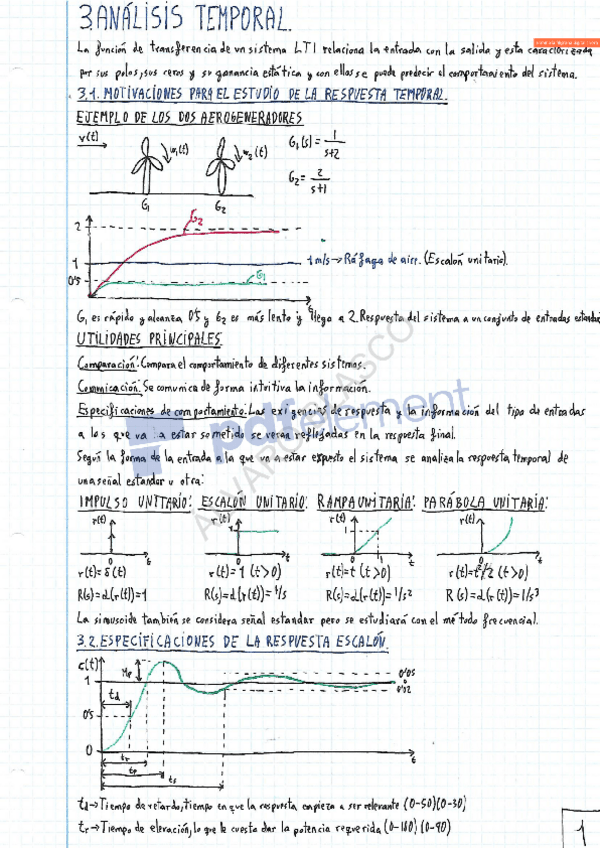 3. ANÁLISIS TEMPORAL.
La función de transferencia de un sistema LTI relaciona la entrada con la salida y esta caracterizada
por sus polos, sus ceros y su ganancia estática y con ellos se puede predecir el comportamiento del sistema.
3.1. MOTIVACIONES PARA EL ESTUDIO DE LA RESPUESTA TEMPORAL.
EJEMPLO DE LOS DOS AEROGENERADORES
v(t)
w1(t)
w2(t)
G1(s)= 1/s+2
G2= 2/s+1
G1
G2
2
G2
1
1 m/s → Ráfaga de aire. (Escalón unitario).
0'5
G1
t
G1 es rápido y alcanza 0'5 y G2 es más lento y llega a 2. Respuesta del sistema a un conjunto de entradas
UTILIDADES PRINCIPALES
Comparación: Compara el comportamiento de diferentes sistemas.
Comunicación: Se comunica de forma intuitiva la información.
Especificaciones de comportamiento. Las exigencias de respuesta y la información del tipo de entradas
a los que va a estar sometido se veran reflejadas en la respuesta final.
Según la forma de la entrada a la que va a estar expuesto el sistema se analiza la respuesta temporal de
una señal estandar u otra:
IMPULSO UNITARIO: ESCALÓN UNITARIO: RAMPA UNITARIA: PARÁBOLA UNITARIA:
r(t) r(t) r(t) r(t)
1
0 t 0 t 0 1 t 0 t
r(t)=δ(t) r(t)=1 (t>0) r(t)=t (t>0) r(t)=t²/2 (t>0)
R(s)=L(r(t))=1 R(s)=L(r(t))=1/s R(s)=L(r(t))=1/s² R(s)=L(r(t))=1/s³
La sinusoide también se considera señal estandar pero se estudiará con el método frecuencial.
3.2. ESPECIFICACIONES DE LA RESPUESTA ESCALÓN.
c(t)
Mp
0'05
1
0'02
td
0'5
0
t
tr
tp
ts
td → Tiempo de retardo, tiempo en que la respuesta empieza a ser relevante (0-50)(0-30)
tr → Tiempo de elevación, lo que le cuesta dar la potencia requerida (0-100)(0-90)
1
pdfelement